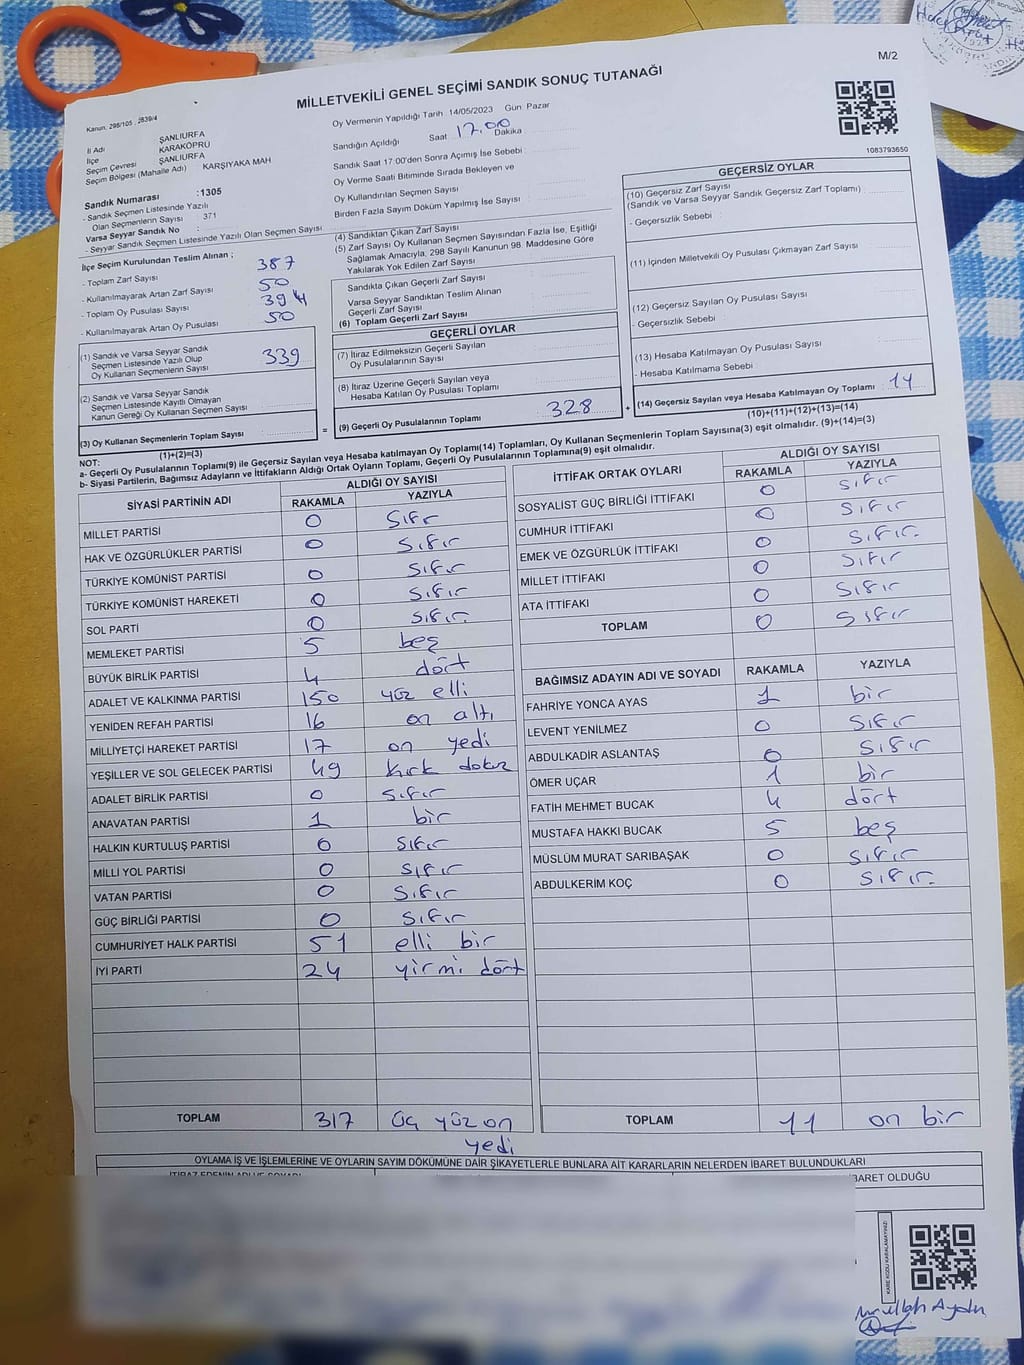 M/2
MİLLETVEKİLİ GENEL SEÇİMİ SANDIK SONUÇ TUTANAĞI
Kanun. 298/105 , 2839/4
İl Adı ŞANLIURFA
İlçe KARAKÖPRÜ
Seçim Çevresi ŞANLIURFA
Seçim Bölgesi (Mahalle Adı) KARŞIYAKA MAH
Sandık Numarası :1305
- Sandık Seçmen Listesinde Yazılı
Olan Seçmenlerin Sayısı : 371
Varsa Seyyar Sandık No
- Seyyar Sandık Seçmen Listesinde Yazılı Olan Seçmen Sayısı
İlçe Seçim Kurulundan Teslim Alınan ;
- Toplam Zarf Sayısı 387
- Kullanılmayarak Artan Zarf Sayısı 50
- Toplam Oy Pusulası Sayısı 394
- Kullanılmayarak Artan Oy Pusulası 50
(1) Sandık ve Varsa Seyyar Sandık
Seçmen Listesinde Yazılı Olup
Oy Kullanan Seçmenlerin Sayısı 339
(2) Sandık ve Varsa Seyyar Sandık
Seçmen Listesinde Kayıtlı Olmayan
Kanun Gereği Oy Kullanan Seçmen Sayısı
(3) Oy Kullanan Seçmenlerin Toplam Sayısı
(1)+(2)=(3)
Oy Vermenin Yapıldığı Tarih 14/05/2023 Gün Pazar
Sandığın Açıldığı Saat 17.00 Dakika
Sandık Saat 17:00'den Sonra Açımış İse Sebebi
Oy Verme Saati Bitiminde Sırada Bekleyen ve
Oy Kullandırılan Seçmen Sayısı
Birden Fazla Sayım Döküm Yapılmış İse Sayısı
(4) Sandıktan Çıkan Zarf Sayısı
(5) Zarf Sayısı Oy Kullanan Seçmen Sayısından Fazla İse, Eşitliği
Sağlamak Amacıyla, 298 Sayılı Kanunun 98. Maddesine Göre
Yakılarak Yok Edilen Zarf Sayısı
Sandıkta Çıkan Geçerli Zarf Sayısı
Varsa Seyyar Sandıktan Teslim Alınan
Geçerli Zarf Sayısı
(6) Toplam Geçerli Zarf Sayısı
GEÇERLİ OYLAR
(7) İtiraz Edilmeksizin Geçerli Sayılan
Oy Pusulalarının Sayısı
(8) İtiraz Üzerine Geçerli Sayılan veya
Hesaba Katılan Oy Pusulası Toplamı
= (9) Geçerli Oy Pusulalarının Toplamı 328 +
1083793650
GEÇERSİZ OYLAR
(10) Geçersiz Zarf Sayısı
(Sandık ve Varsa Seyyar Sandık Geçersiz Zarf Toplamı)
- Geçersizlik Sebebi
(11) İçinden Milletvekili Oy Pusulası Çıkmayan Zarf Sayısı
(12) Geçersiz Sayılan Oy Pusulası Sayısı
- Geçersizlik Sebebi
(13) Hesaba Katılmayan Oy Pusulası Sayısı
- Hesaba Katılmama Sebebi
(14) Geçersiz Sayılan veya Hesaba Katılmayan Oy Toplamı 14
(10)+(11)+(12)+(13)=(14)
NOT:
a- Geçerli Oy Pusulalarının Toplamı(9) ile Geçersiz Sayılan veya Hesaba katılmayan Oy Toplamı(14) Toplamları, Oy Kullanan Seçmenlerin Toplam Sayısına(3) eşit olmalıdır. (9)+(14)=(3)
b- Siyasi Partilerin, Bağımsız Adayların ve İttifakların Aldığı Ortak Oyların Toplamı, Geçerli Oy Pusulalarının Toplamına(9) eşit olmalıdır.
SİYASİ PARTİNİN ADI ALDIĞI OY SAYISI
RAKAMLA YAZIYLA
MİLLET PARTİSİ 0 Sıfır
HAK VE ÖZGÜRLÜKLER PARTİSİ 0 Sıfır
TÜRKİYE KOMÜNİST PARTİSİ 0 Sıfır
TÜRKİYE KOMÜNİST HAREKETİ 0 Sıfır
SOL PARTİ 0 Sıfır
MEMLEKET PARTİSİ 5 beş
BÜYÜK BİRLİK PARTİSİ 4 dört
ADALET VE KALKINMA PARTİSİ 150 yüz elli
YENİDEN REFAH PARTİSİ 16 on altı
MİLLİYETÇİ HAREKET PARTİSİ 17 on yedi
YEŞİLLER VE SOL GELECEK PARTİSİ 49 kırk dokuz
ADALET BİRLİK PARTİSİ 0 Sıfır
ANAVATAN PARTİSİ 1 bir
HALKIN KURTULUŞ PARTİSİ 0 Sıfır
MİLLİ YOL PARTİSİ 0 Sıfır
VATAN PARTİSİ 0 Sıfır
GÜÇ BİRLİĞİ PARTİSİ 0 Sıfır
CUMHURİYET HALK PARTİSİ 51 elli bir
İYİ PARTİ 24 yirmi dört
TOPLAM 317 üç yüz on
yedi
İTTİFAK ORTAK OYLARI ALDIĞI OY SAYISI
RAKAMLA YAZIYLA
SOSYALİST GÜÇ BİRLİĞİ İTTİFAKI 0 Sıfır
CUMHUR İTTİFAKI 0 Sıfır
EMEK VE ÖZGÜRLÜK İTTİFAKI 0 Sıfır.
MİLLET İTTİFAKI 0 Sıfır
ATA İTTİFAKI 0 Sıfır
TOPLAM 0 Sıfır
BAĞIMSIZ ADAYIN ADI VE SOYADI RAKAMLA YAZIYLA
FAHRİYE YONCA AYAS 1 bir
LEVENT YENİLMEZ 0 Sıfır
ABDULKADİR ASLANTAŞ 0 Sıfır
ÖMER UÇAR 1 bir
FATİH MEHMET BUCAK 4 dört
MUSTAFA HAKKI BUCAK 5 beş
MÜSLÜM MURAT SARIBAŞAK 0 Sıfır
ABDULKERİM KOÇ 0 Sıfır.
TOPLAM 11 on bir
OYLAMA İŞ VE İŞLEMLERİNE VE OYLARIN SAYIM DÖKÜMÜNE DAİR ŞİKAYETLERLE BUNLARA AİT KARARLARIN NELERDEN İBARET BULUNDUKLARI
İTİRAZ EDENİN ADI VE SOYADI
İBARET OLDUĞU
KARE KODU KARALAMAYINIZ!
Nurullah Aydın